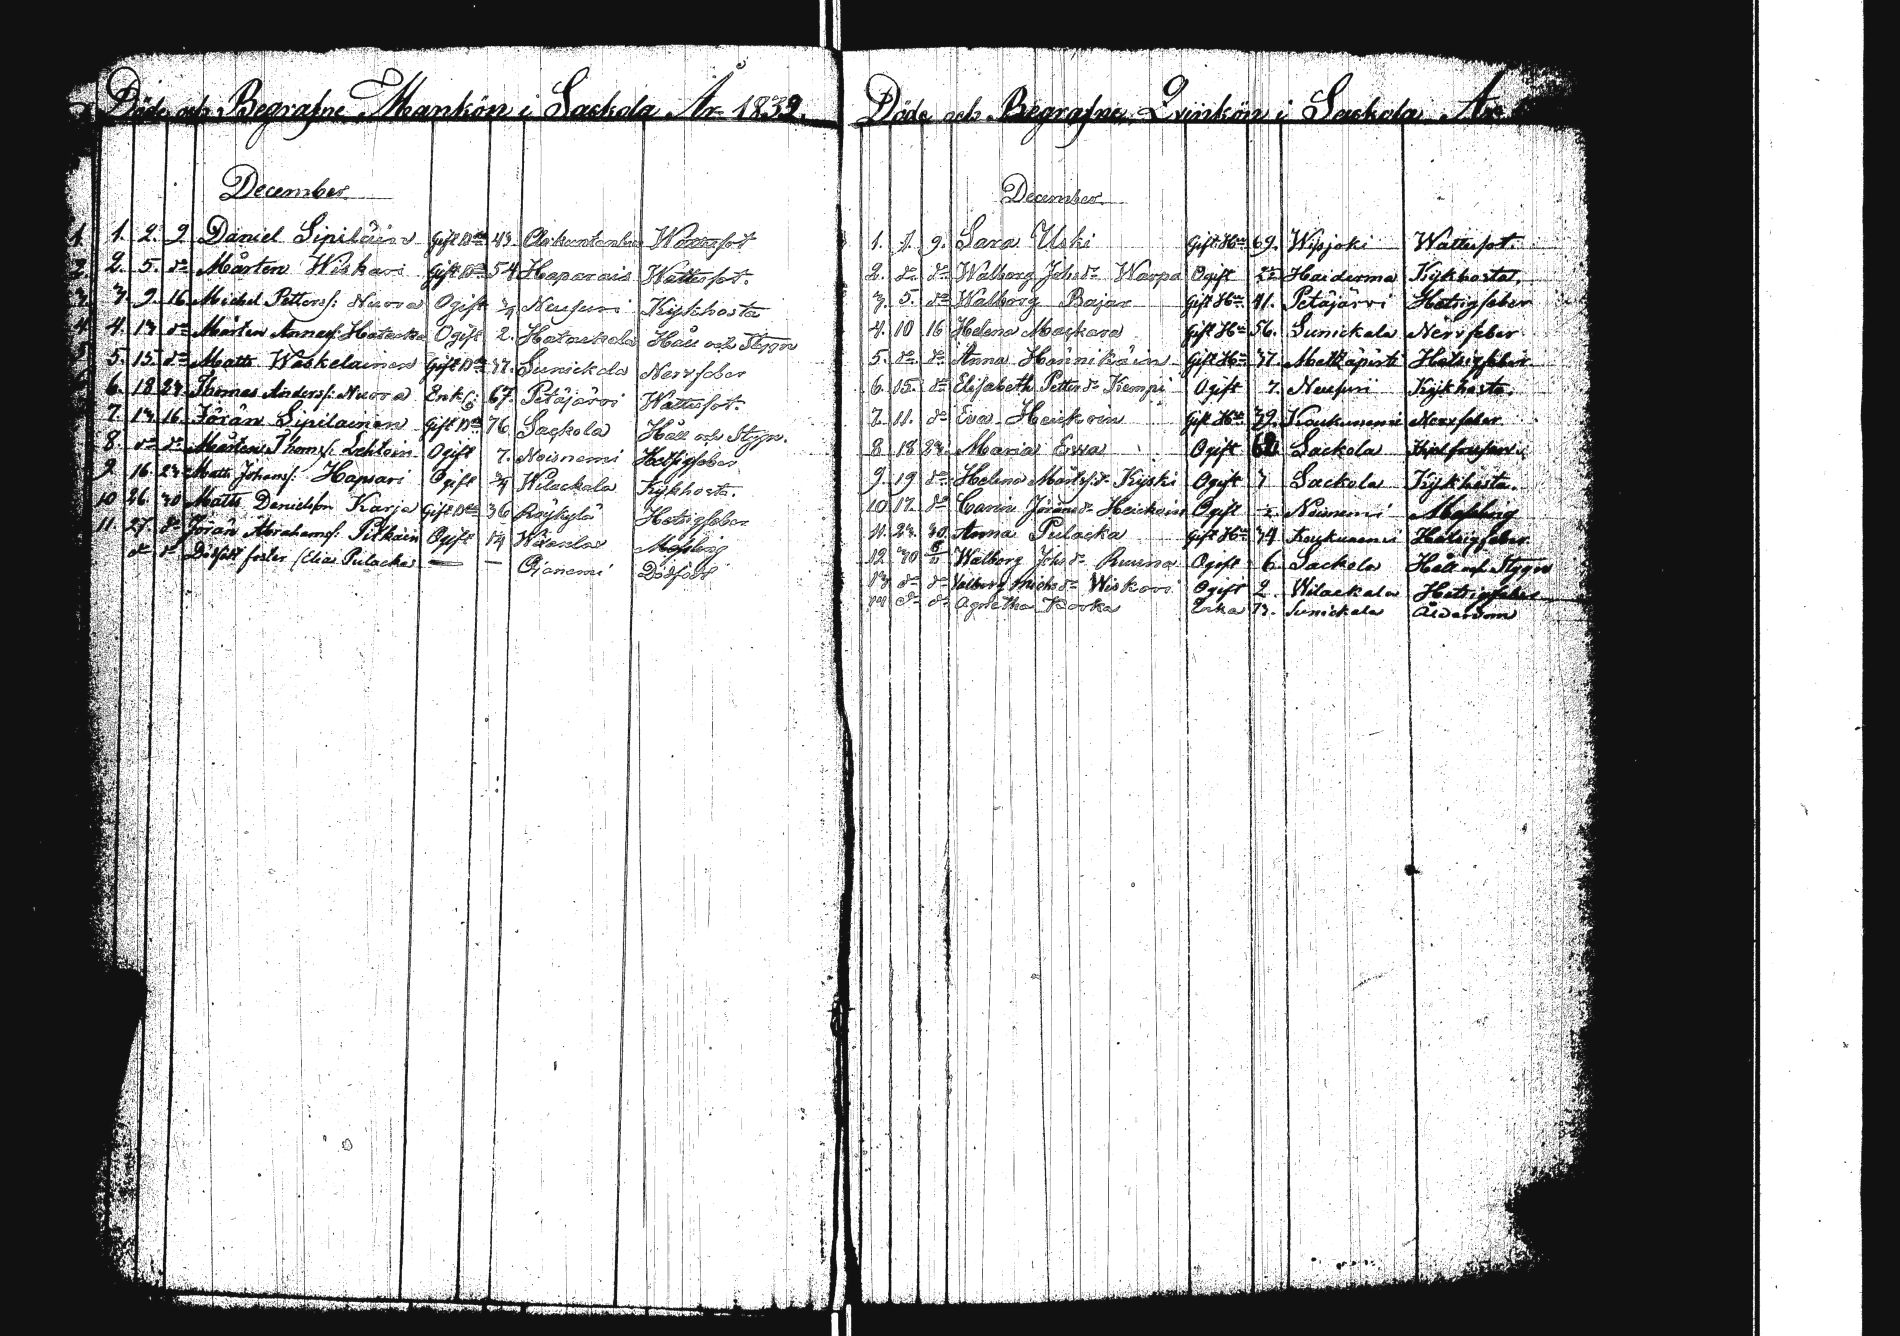 Döde och Begrafne Mankön i Sackola År 1832.
December
1. 1. 2. 9. Daniel Sipiläin Gift 43. Wattusot
2. 2. 5. do Mårten Wiskari Gift 54 Haparais Wattusot.
3. 3. 9. 16 Michel Petterss: Nuora Ogift 3/4 Neusuri Kijkhosta
4. 4. 13 do Mårten Annass: Hatacka Ogift 2. Hatackala Håll och Stygn
5. 5. 15. do Matts Wäskelainen Gift 37. Sunickala Nervfeber
6. 18 23. Thomas Anderss: Nuora Enkl: 67. Petäjärvi Wattusot.
7. 13 16. Jöran Sipilainen Gift 76. Sackola Håll och Stygn.
8. do do Mårten Thomss: Lehtoin Ogift 7. Noisnemi Hetsigfeber
9. 16. 23 Matts Johanss: Hapsari Ogift 3/4 Wilackala Kijkhosta.
10 26. 30 Matts Danielsson Karja Gift 36 Röijkylä Hetsigfeber
11. 27. do Jöran Abrahamss: Pitkäin Ogift Messling
do do Dödfödt foster (Elias Pulacka — — Dödfödt
Döde och Begrafne Qvinkön i Sackola År
December
1. 1. 9. Sara Uski Gift 69. Wijsjoki Wattusot.
2. do do Walborg Johsdr Warpa Ogift Haiderma Kijkhosta.
3. 5. do Walborg Bajar Gift 41. Petäjärvi Hetsigfeber
4. 10 16 Helena Mackara Gift 56. Sunickala Nervfeber
5. do do Anna Hännikäin Gift 37. Metzäpirti Hetsigfeber
6. 15. do Elisabeth Pettersdr Kemppi Ogift 7. Neusuri Kijkhosta.
7. 11. do Eva Heickoin Gift 39. Kaukunemi Nervfeber
8 18 23. Maria Ewa Ogift 60 Sackola
9. 19 do Helena Mårtsdr Kijski Ogift 7 Sackola Kijkhosta.
10 17. do Carin Jöransdr Heickoin Ogift Noisnemi Messling
11. 23. 30. Anna Pulacka Gift 34 Kaukunemi Hetsigfeber
12 30 Walborg Johsdr Ruuna Ogift 6 Sackola Håll och Stygn
13 do do Walborg Michsdr Wiskari Ogift 2. Wilackala Hetsigfeber
14 do do Agnetha Korka Enka 73. Sunickala Ålderdom